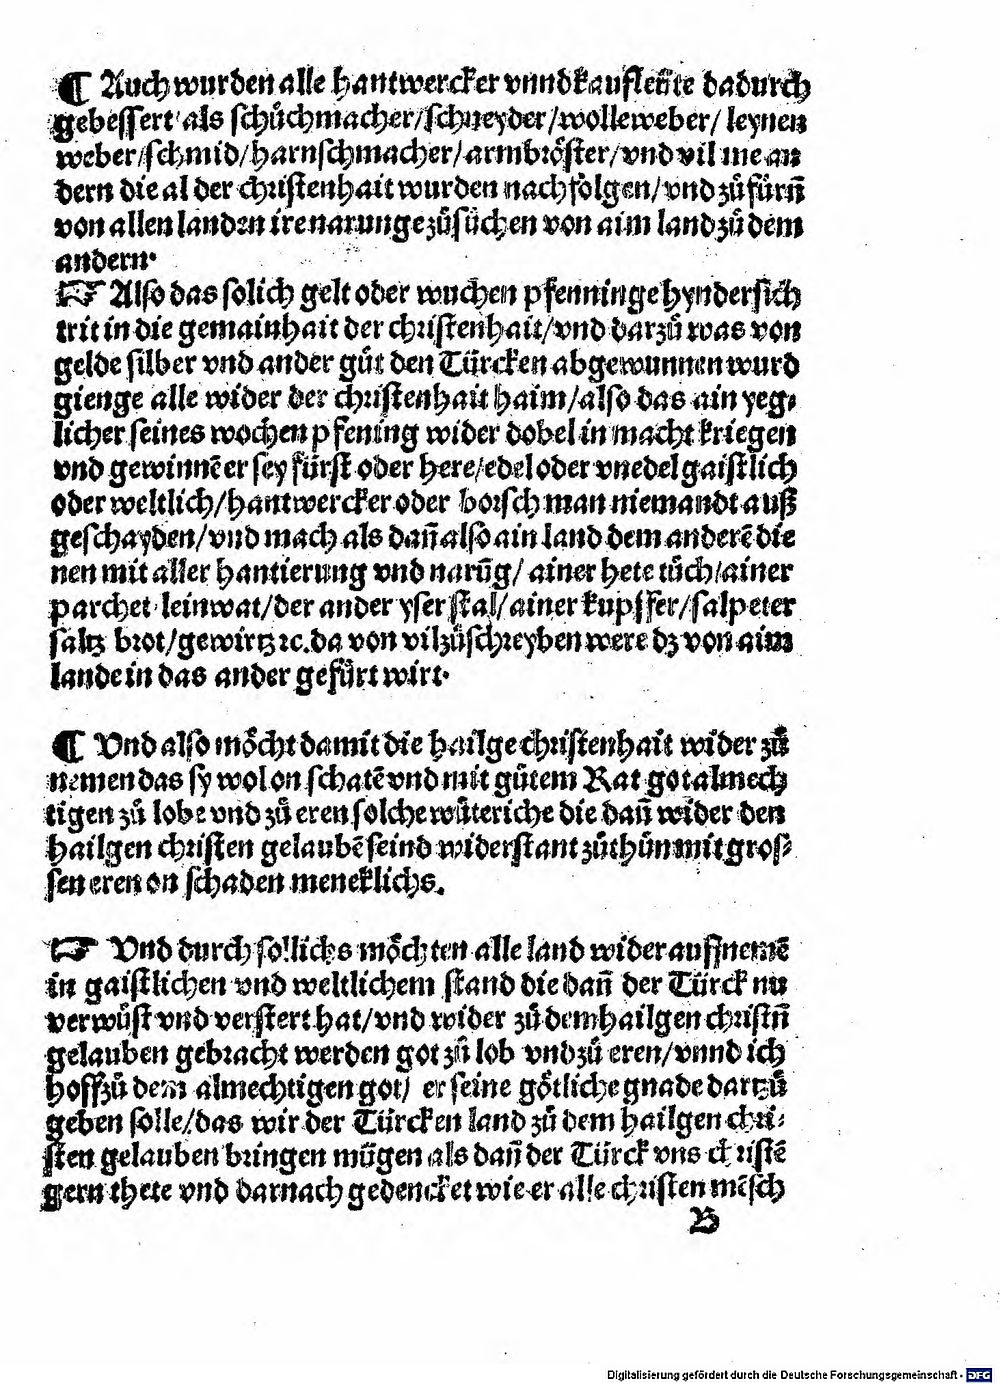 ¶ Auch wurden alle hantwercker vnnd kaufleüte dadurch
gebessert als schůchmacher/schneyder/wolleweber/ leynen
weber/schmid/harnschmacher/armbröster/vnd vil me an
dern die al der christenhait wurden nachfölgen/vnd zůfürn̄
von allen landen ire narunge zůsůchen von aim land zů dem
andern.
☞ Also das solich gelt oder wuchen pfenninge hyndersich
trit in die gemainhait der christenhait/vnd darzů was von
gelde silber vnd ander gůt den Türcken abgewunnen wurd
gienge alle wider der christenhait haim/also das ain yeg⸗
licher seines wochen pfening wider dobel in macht kriegen
vnd gewinnē er sey fürst oder here/edel oder vnedel gaistlich
oder weltlich/hantwercker oder borsch man niemandt auß
geschayden/vnd mach als dañ also ain land dem anderē die
nen mit aller hantierung vnd narūg/ ainer hete tůch/ainer
parchet leinwat/der ander yser stal/ainer kupffer/salpeter
saltz brot/gewirtz ꝛc. da von vil zůschreyben were dz von aim
lande in das ander gefürt wirt.
¶ Vnd also möcht damit die hailge christenhait wider zů
nemen das sy wol on schatē vnd mit gůtem Rat got almech
tigen zů lobe vnd zů eren solche wůteriche die dañ wider den
hailgen christen gelaubē seind widerstant zůthůn mit gros⸗
sen eren on schaden meneklichs.
☞ Vnd durch sollichs möchten alle land wider auffnemē
in gaistlichen vnd weltlichem stand die dañ der Türck nu
verwüst vnd verstert hat/vnd wider zů dem hailgen christñ
gelauben gebracht werden got zů lob vnd zů eren/vnnd ich
hoff zů dem almechtigen got/ er seine götliche gnade dartzů
geben solle/das wir der Türcken land zů dem hailgen chri⸗
sten gelauben bringen mügen als dañ der Türck vns christē
gern thete vnd darnach gedencket wie er alle christen mēsch
B
Digitalisierung gefördert durch die Deutsche Forschungsgemeinschaft - DFG